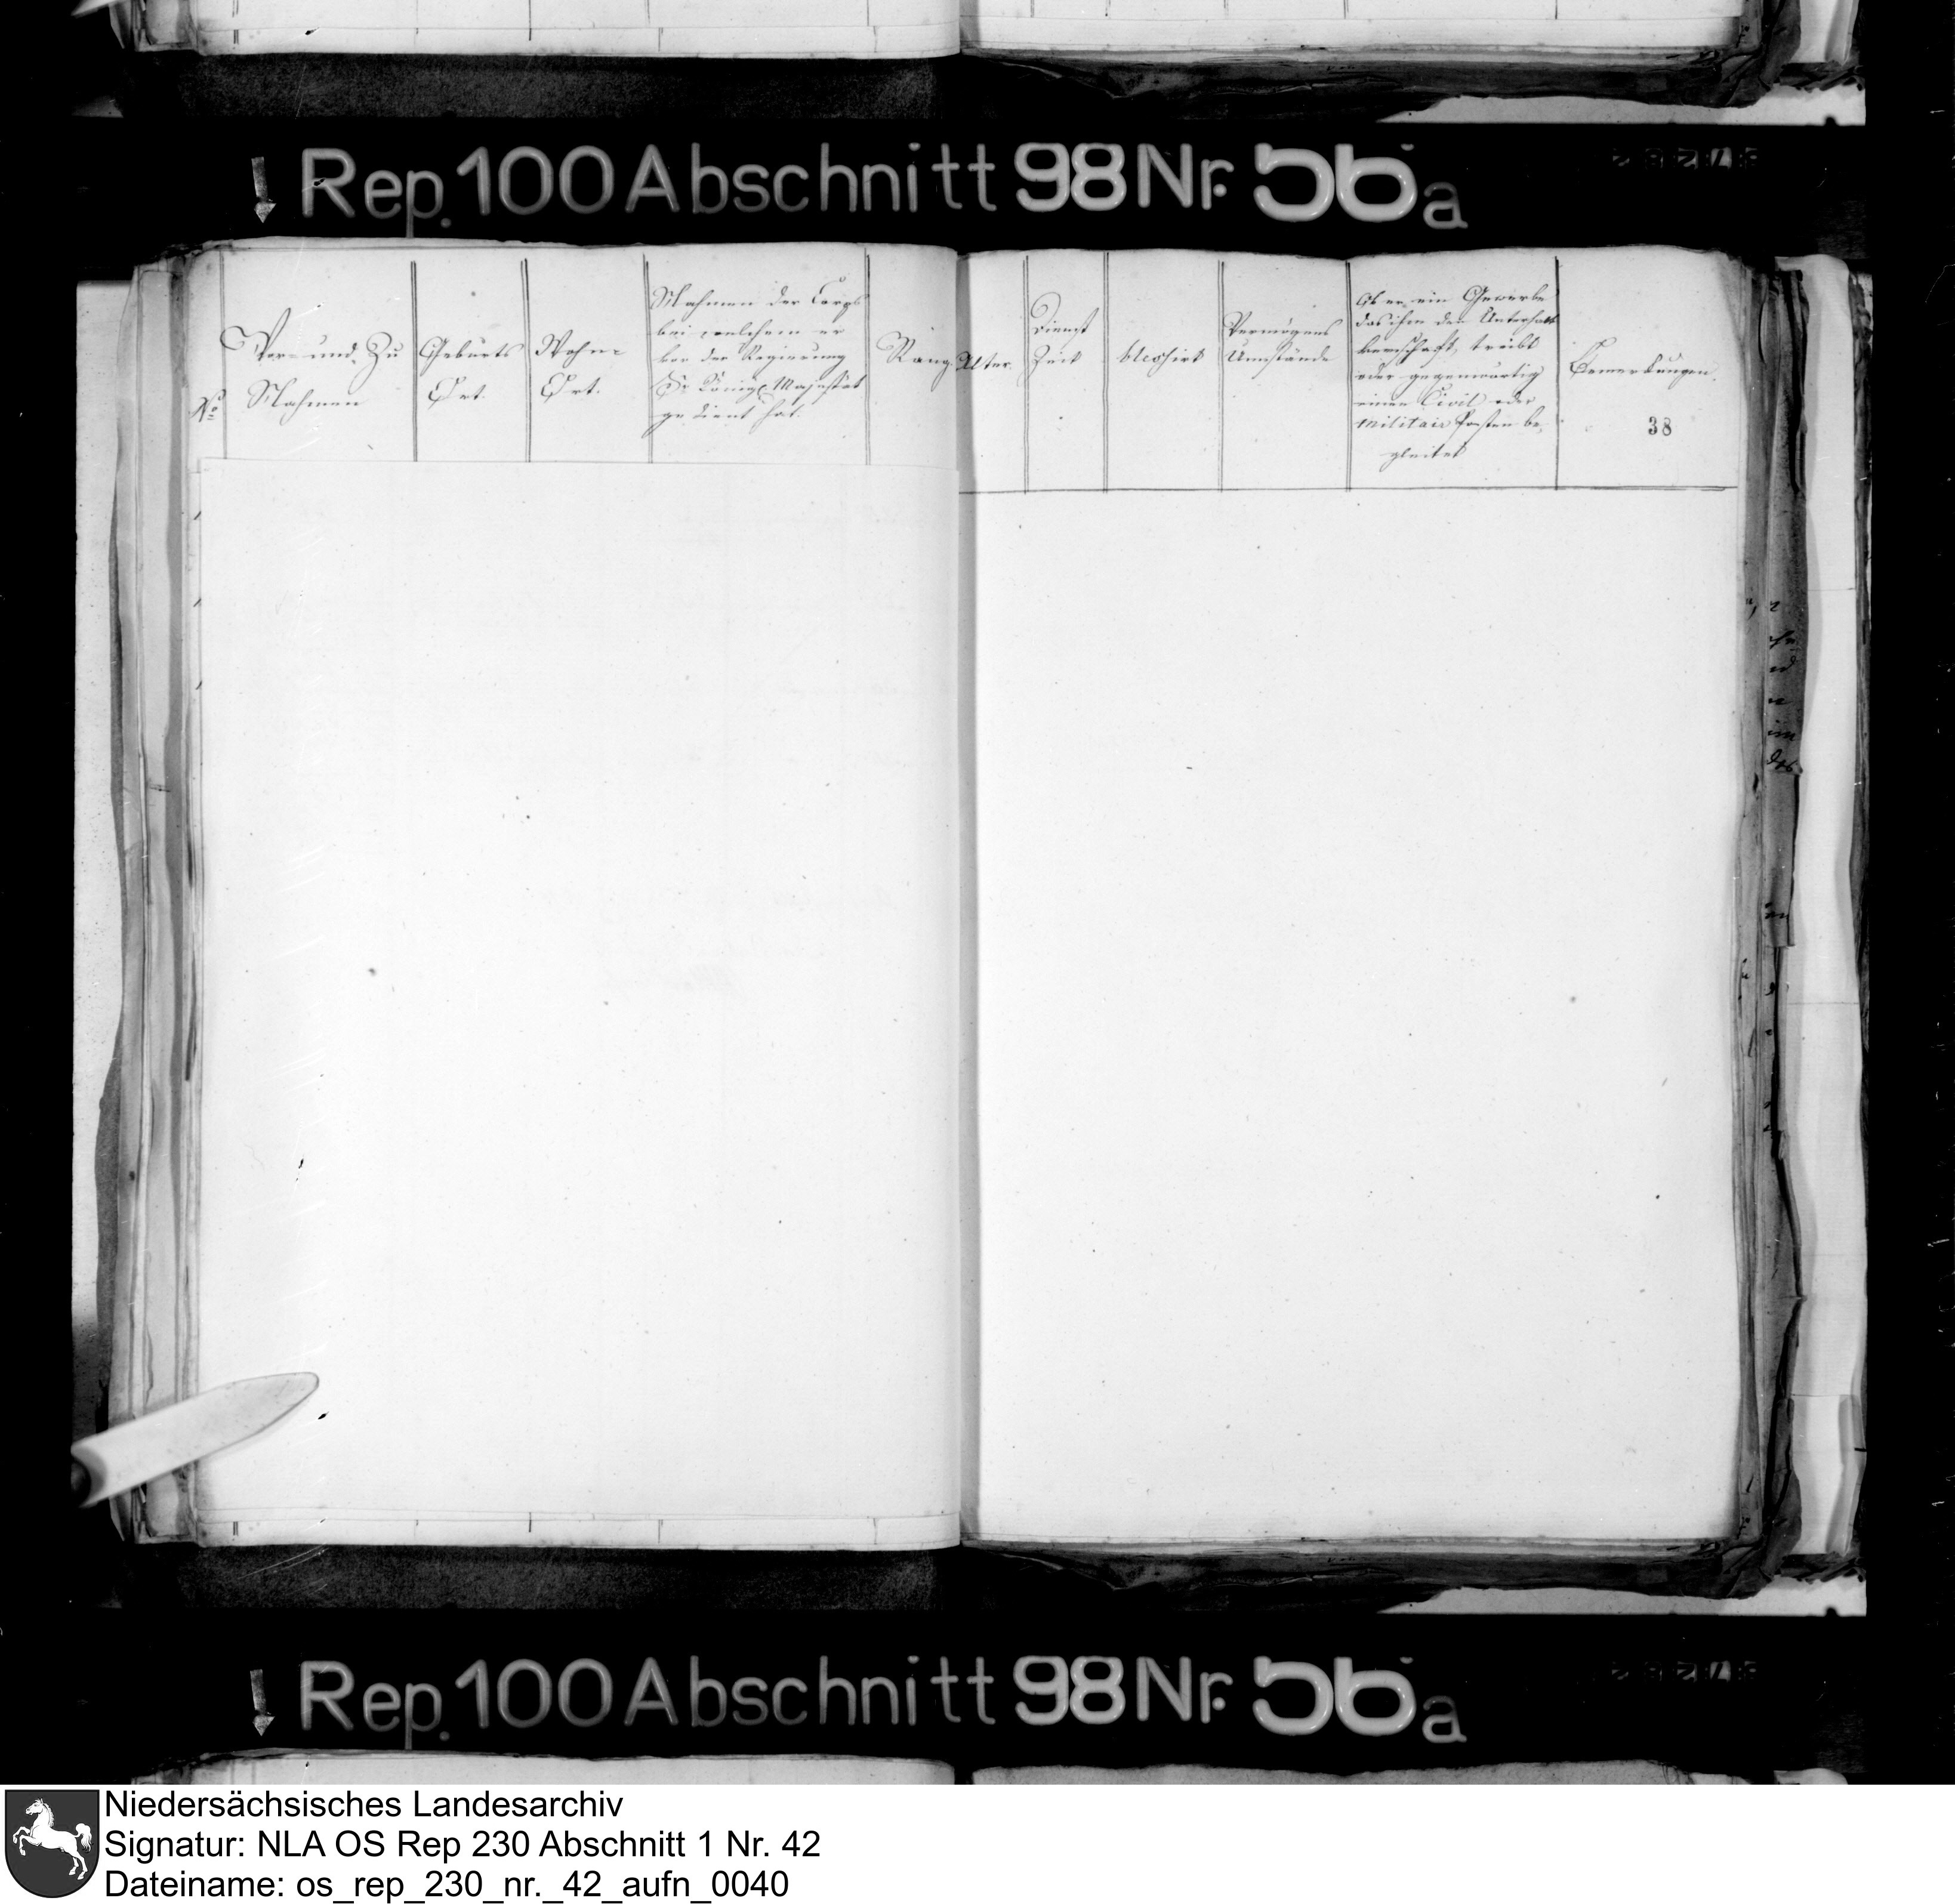 Rep. 100 Abschnitt 98 Nr. 56a
No
Vor- und Zu
Nahmen
Geburts
Ort.
Wohn-
Ort.
Nahmen der Corps
bei welchem er
vor der Regierung
Sr Königl. Majestät
gedient hat.
Rang.
Alter.
Dienst
Zeit
blessirt
Vermögens
Umstände
Ob er ein Gewerbe
das ihm den Unterhalt
verschaft, treibt
oder gegenwärtig
einen Civil oder
Militair Posten be-
gleitet
Bemerkungen.
38
Rep. 100 Abschnitt 98 Nr. 56a
Niedersächsisches Landesarchiv
Signatur: NLA OS Rep 230 Abschnitt 1 Nr. 42
Dateiname: os_rep_230_nr._42_aufn_0040